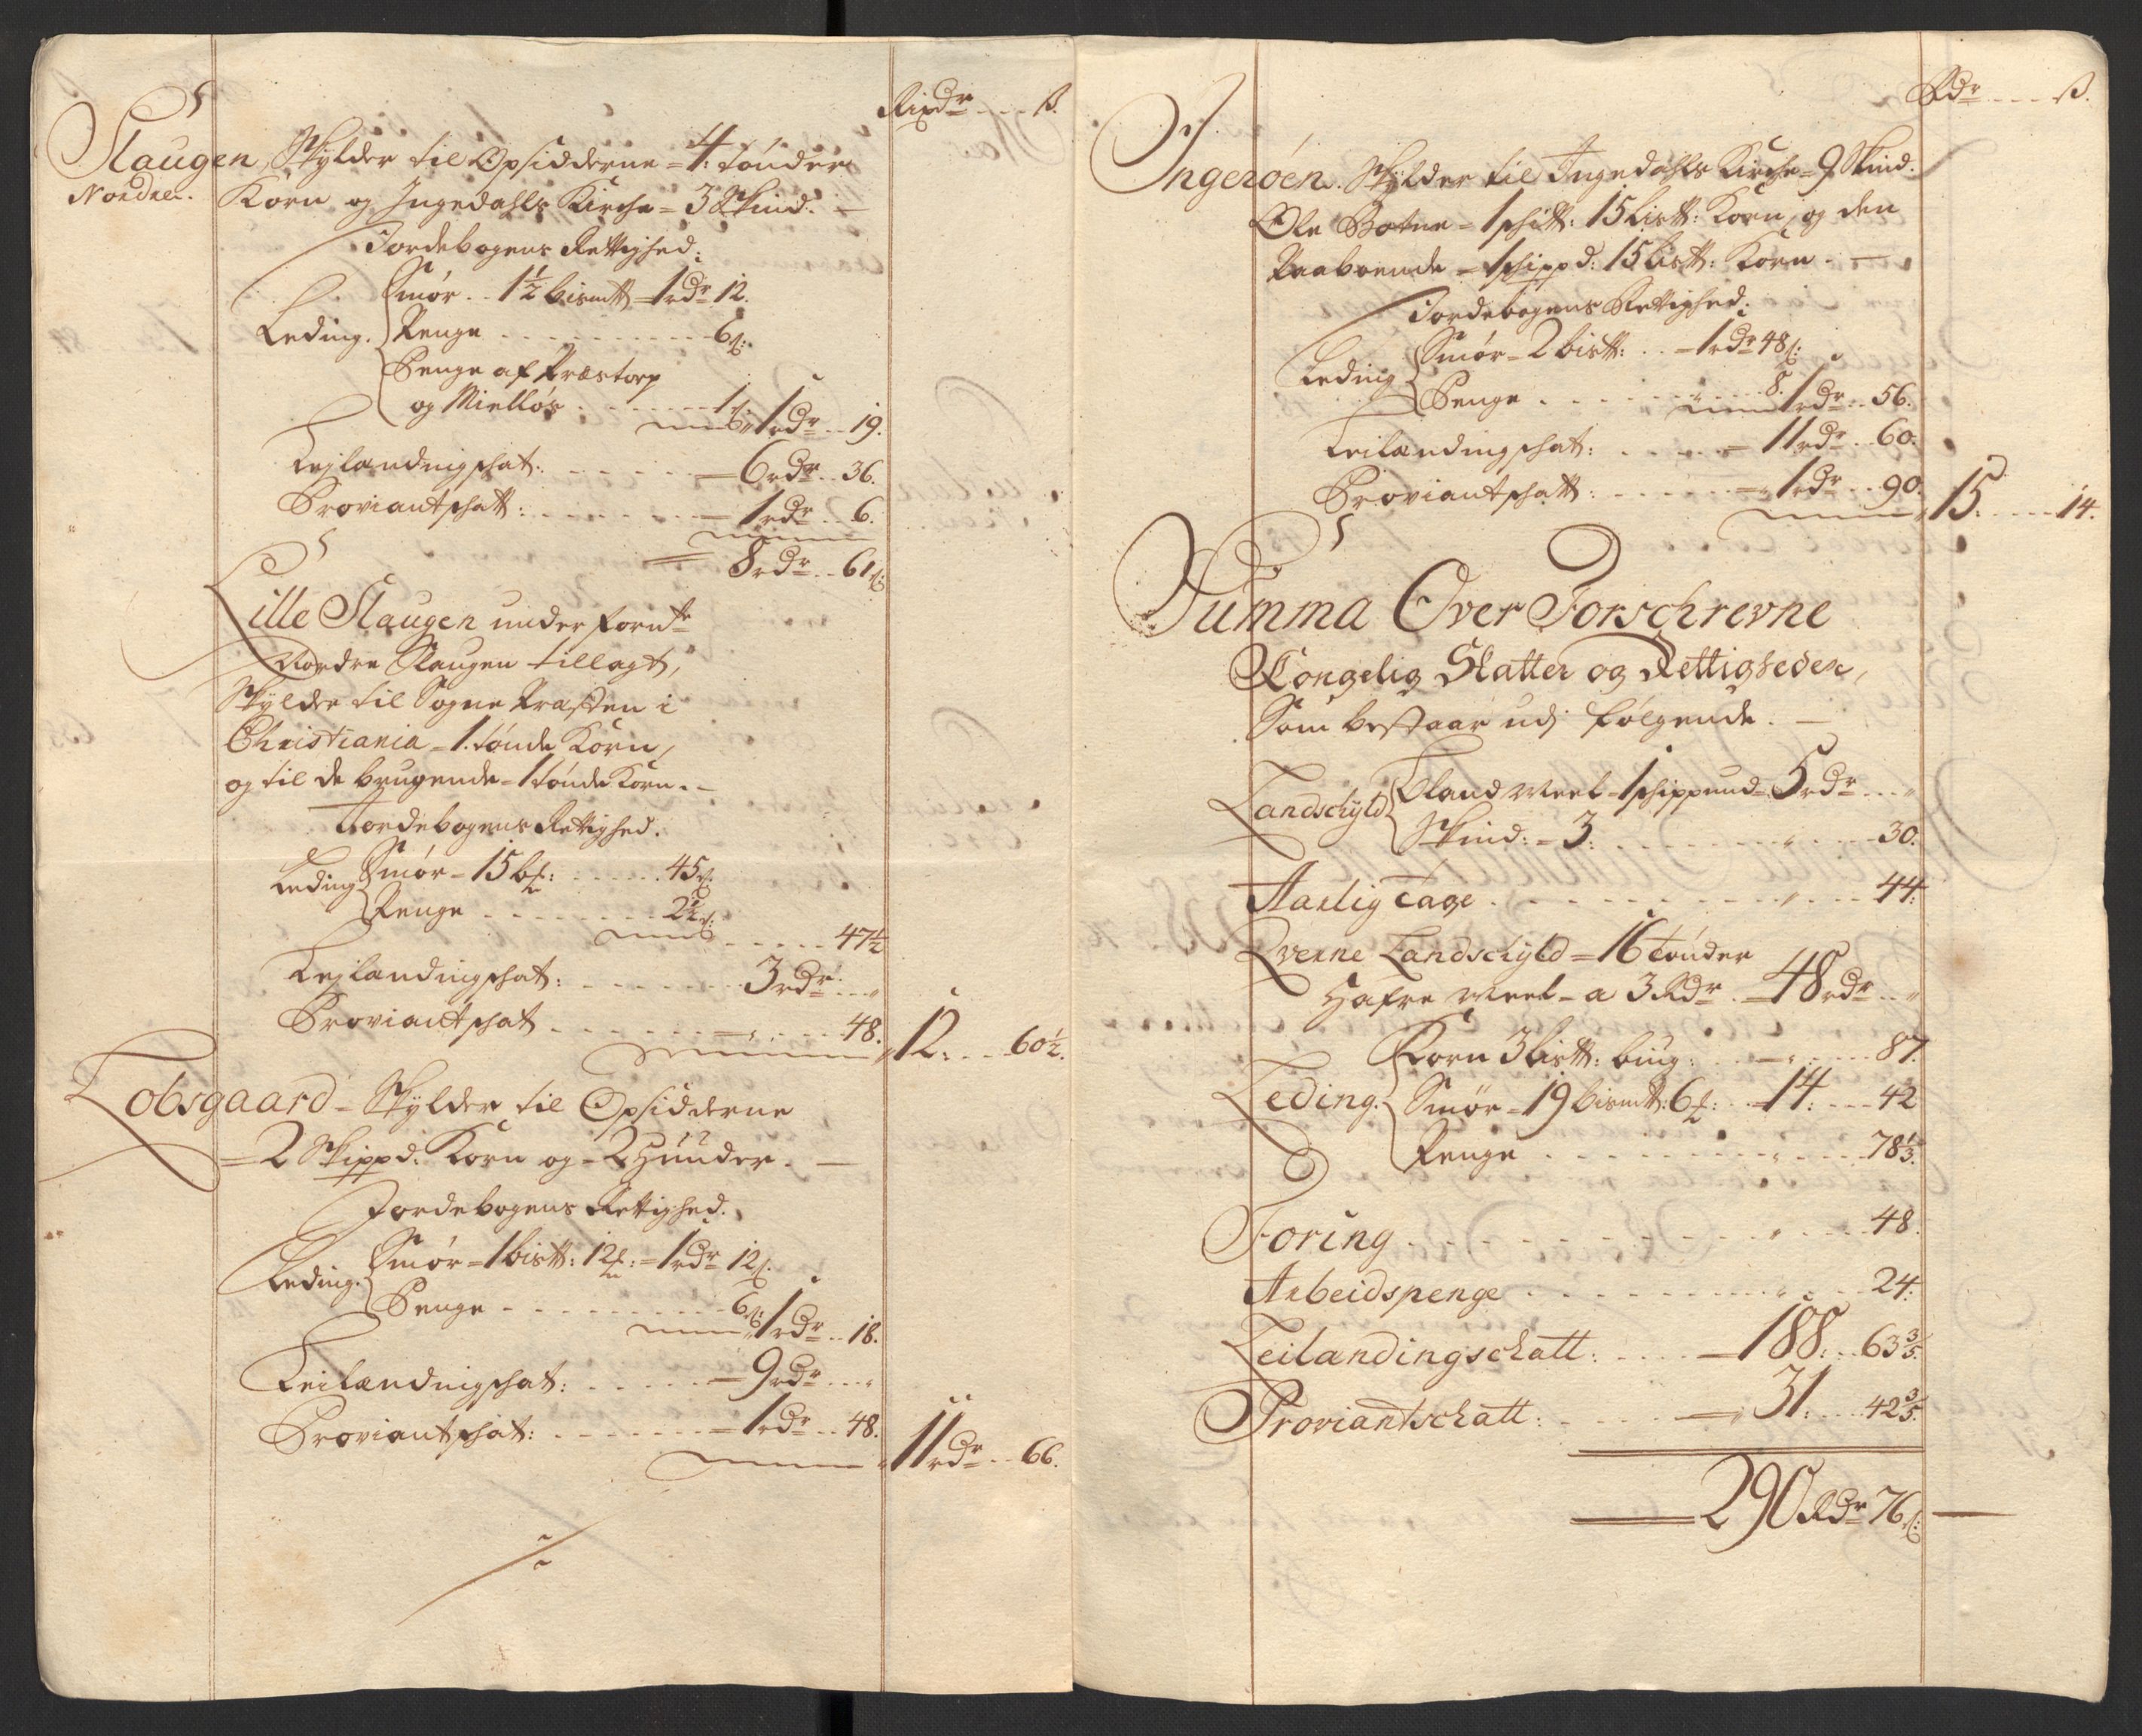 Rixdr ß.
Slaugen, Skylder til Opsidderne = 4: tønder
Nordre. Korn og Ingedahls Kirche = 3 Skind. —
Jordebogens Rettighed:
Smør . . 1½ bismtt = 1 rdr 12.
Leding. Penge . . . . . 6 ß:
Penge af Præstorp
og Mielløs . . . . . 1 ß 1 rdr . . 19.
Leilandingschat: . . . . = 6 rdr . . 36.
Proviantschatt: . . . . = 1 rdr . . 6.
= 8 rdr . . 61 ß:
Lille Slaugen under fornte
Nordre Slaugen tillagt,
Skylder til Sogne Præsten i
Christiania = 1. tønde Korn,
og til de brugende = 1 tønde Korn. —
Jordebogens Rettighed.
Leding Smør = 15 b: . . . . 45 ß.
Penge . . . . 2½ ß.
. . . . 47½
Leilandingschat: . . . . 3 rdr . . "
Proviantschat . . . . = " . . 48. 12. . . 60½.
Lobsgaard = Skylder til Opsidderne
= 2 Skippd: Korn og = 2 Huuder. —
Jordebogens Rettighed.
Leding. Smør = 1 bistt: 12 : = 1 rdr 12 ß.
Penge . . . . 6 ß: 1 rdr . . 18.
Leilændingschat: . . . . = 9 rdr . . "
Proviantschat: . . . . = 1 rdr . . 48. 11 rdr . . 66.
Rdr ß.
Ingerøen. Skylder til Ingedahls Kirche = 9 Skind.
Ole Botne = 1 schtt: 15 listt: Korn, og den
Paaboende = 1 schippd: 15 listt: Korn. —
Jordebogens Rettighed:
Leding Smør = 2 bistt: . . = 1 rdr 48 ß:
Penge . . . . " . . 8. 1 rdr . . 56.
Leilændingschat: . . . . = 11 rdr . . 60.
Proviantschatt: . . . . = 1 rdr . . 90. 15. . . 14.
Summa Over Forschrevne
Kongelig Skatter og Rettigheder,
Som bestaar udj følgende. —
Landschyld Bland Meel = 1 schippund = 5 rdr . . "
Skind: = 3: . . . . " . . 30.
Aarlig Tage . . . . " . . 44.
Qverne Landschyld = 16 tønder
Hafre Meel = a 3 Rdr . = 48 rdr . . "
Korn 3 listt: biug: . . = " . . 87.
Leding. Smør = 19 bismtt: 6 : . . = 14. . . 42
Penge . . . . " . . 78⅓.
Foring . . . . " . . 48.
Arbeidspenge . . . . " . . 24.
Leilandingschatt: . . . . = 188: . . 63⅗.
Proviantschatt: . . . . = " 31. . . 42⅗.
290 Rdr 76 ß: —